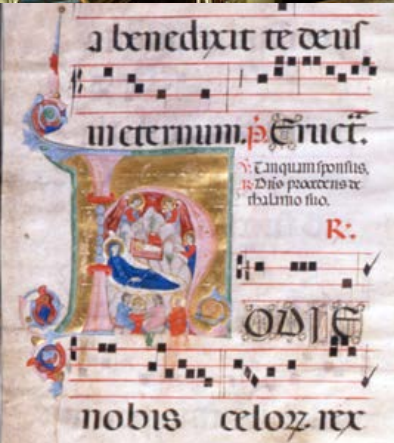 a benedixit te deus
in eternum. p̄. Eructt̄.
V. Tanquam sponsus,
R. Dn̄s procedens de
thalamo suo.
R.
HODIE
nobis celoꝝ rex